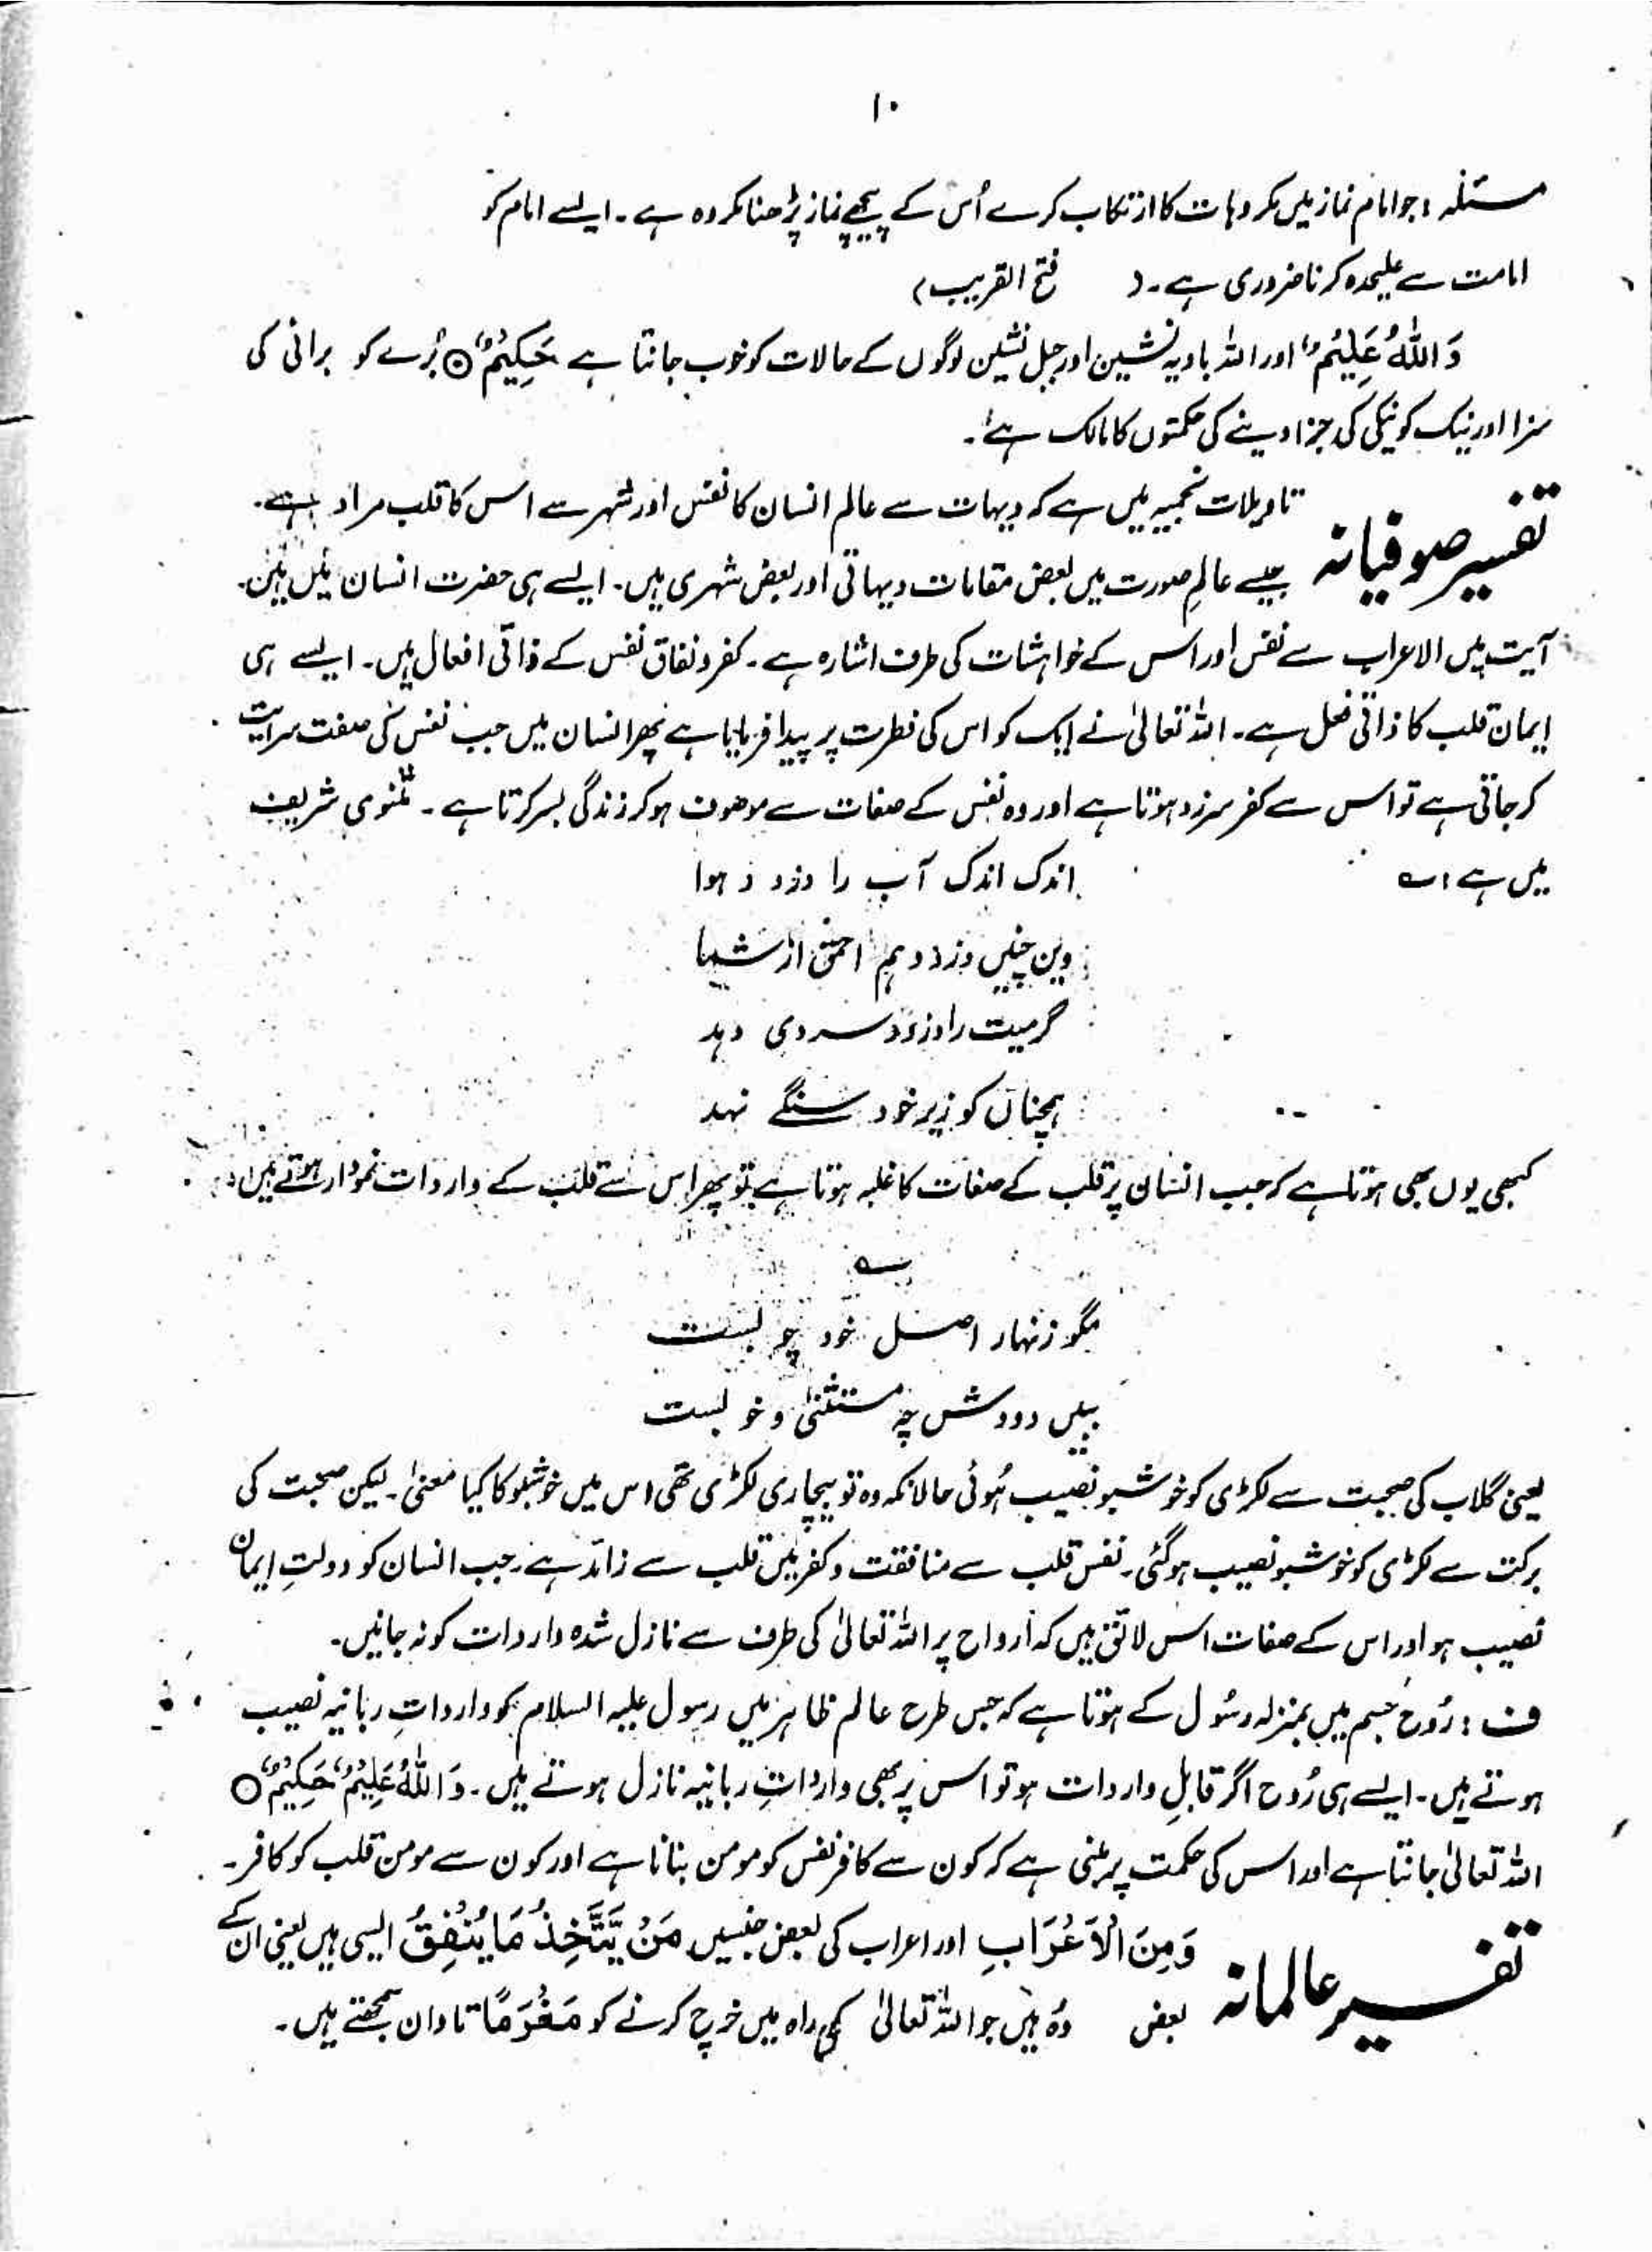 ۱۰
مسئلہ : جو امام نماز میں مکروہات کا ارتکاب کرے اُس کے پیچھے نماز پڑھنا مکروہ ہے۔ ایسے امام کو
امامت سے علیحدہ کرنا ضروری ہے۔ ( فتح القریب )
وَاللّٰهُ عَلِيْمٌ اور اللہ بادیہ نشین اور جبل نشین لوگوں کے حالات کو خوب جانتا ہے حَكِيْمٌ ○ بُرے کو برائی کی
سزا اور نیک کو نیکی کی جزا دینے کی حکمتوں کا مالک ہے۔
تفسیر صوفیانہ تاویلات نجمیہ میں ہے کہ دیہات سے عالم انسان کا نفس اور شہر سے اس کا قلب مراد ہے۔
جیسے عالمِ صورت میں بعض مقامات دیہاتی اور بعض شہری ہیں۔ ایسے ہی حضرت انسان میں ہیں۔
آیت میں الاعراب سے نفس اور اس کے خواہشات کی طرف اشارہ ہے۔ کفر و نفاق نفس کے ذاتی افعال ہیں۔ ایسے ہی
ایمان قلب کا ذاتی فعل ہے۔ اللہ تعالیٰ نے ایک کو اس کی فطرت پر پیدا فرمایا ہے پھر انسان میں جب نفس کی صفت سرایت
کر جاتی ہے تو اس سے کفر سرزد ہوتا ہے اور وہ نفس کے صفات سے موصوف ہو کر زندگی بسر کرتا ہے۔ مثنوی شریف
میں ہے : ؎ اندک اندک آب را دزد د ہوا
وین چنیں دزدد ہم احمق از شما
گرمیت را دزدد سردی دہد
ہمچناں کو زیر خود سنگے نہد
کبھی یوں بھی ہوتا ہے کہ جب انسان پر قلب کے صفات کا غلبہ ہوتا ہے تو پھر اس سے قلب کے واردات نمودار ہوتے ہیں :
؎
مگو زنہار اصل خود چو بست
ببیں دودش چہ مستثنیٰ و خو بست
یعنی گلاب کی صحبت سے لکڑی کو خوشبو نصیب ہُوئی حالانکہ وہ تو بیچاری لکڑی تھی اس میں خوشبو کا کیا معنیٰ۔ لیکن صحبت کی
برکت سے لکڑی کو خوشبو نصیب ہو گئی۔ نفس قلب سے منافقت و کفر میں قلب سے زائد ہے۔ جب انسان کو دولتِ ایمان
نصیب ہو اور اس کے صفات اس لائق ہیں کہ ارواح پر اللہ تعالیٰ کی طرف سے نازل شدہ واردات کو نہ جانیں۔
ف : رُوح جسم میں بمنزلہ رسُول کے ہوتا ہے کہ جس طرح عالم ظاہر میں رسول علیہ السلام کو وارداتِ ربانیہ نصیب
ہوتے ہیں۔ ایسے ہی رُوح اگر قابلِ واردات ہو تو اس پر بھی وارداتِ ربانیہ نازل ہوتے ہیں۔ وَاللّٰهُ عَلِيْمٌ حَكِيْمٌ ○
اللہ تعالیٰ جانتا ہے اور اس کی حکمت پر مبنی ہے کہ کون سے کافر نفس کو مومن بنانا ہے اور کون سے مومن قلب کو کافر۔
تفسیر عالمانہ وَمِنَ الْاَعْرَابِ اور اعراب کی بعض جنسیں مَنْ يَّتَّخِذُ مَا يُنْفِقُ ایسی ہیں یعنی ان کے
بعض وُہ ہیں جو اللہ تعالیٰ کی راہ میں خرچ کرنے کو مَغْرَمًا تاوان سمجھتے ہیں۔